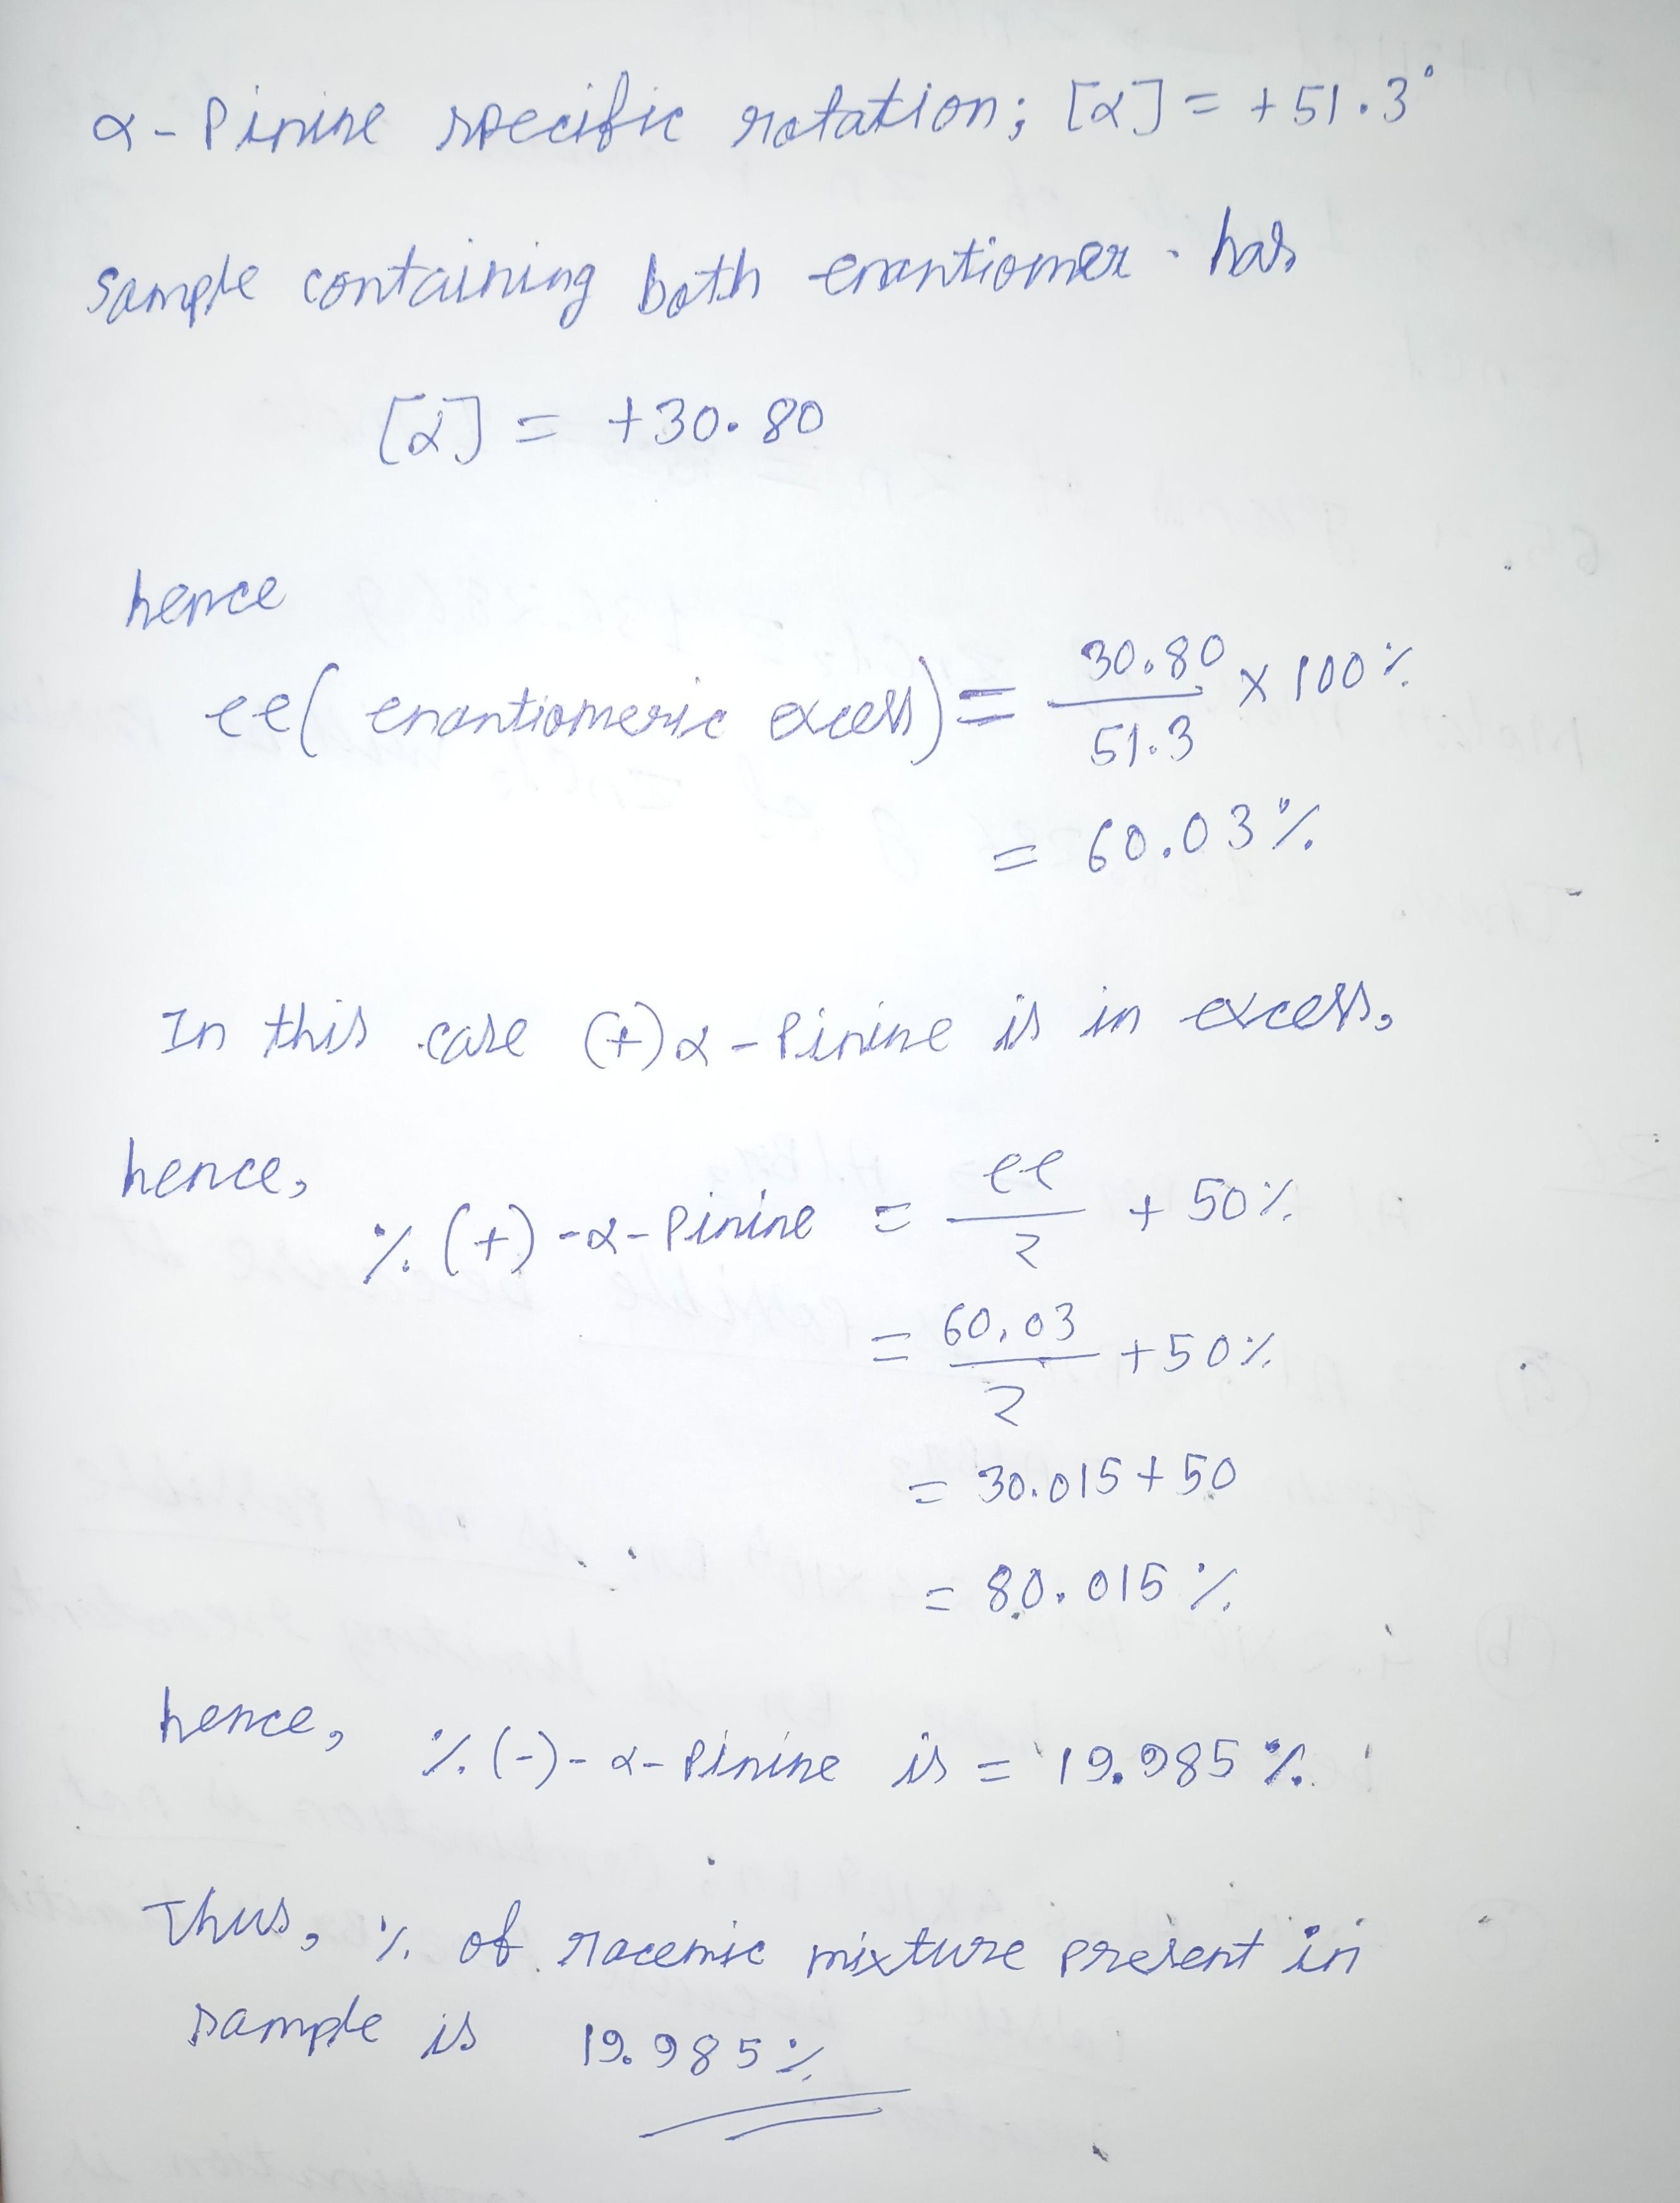 α - Pinine specific rotation; [α] = +51.3°
Sample containing both enantiomer - has
[α] = +30.80
hence
ee( enantiomeric excess) = 30.80 / 51.3 × 100%
= 60.03%
In this case (+)α - Pinine is in excess,
hence, % (+) -α- Pinine = ee / 2 + 50%
= 60.03 / 2 + 50%
= 30.015 + 50
= 80.015 %
hence, % (-) - α- Pinine is = 19.985 %.
Thus, % of racemic mixture present in
sample is 19.985%